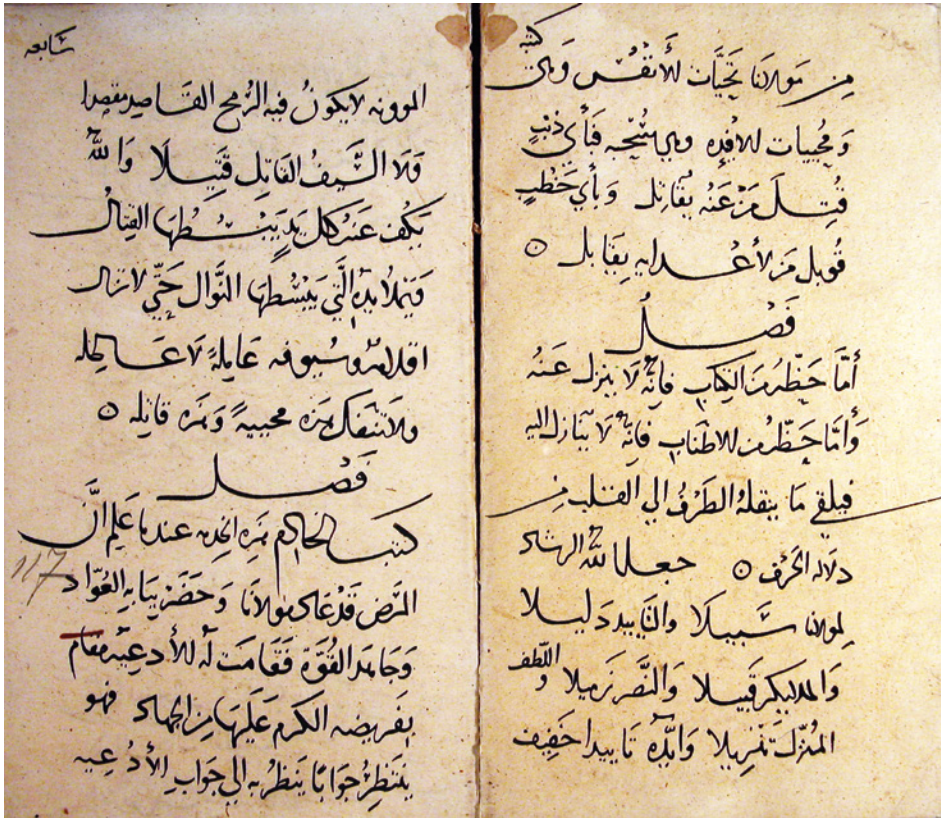 من مولانا تحيات للأنفس وبين كتبه
ومحييات للافئده فبأي ذنب
قتل من عنه يقاتل وبأي خطب
قوبل من لأعدايه يقابل ○
فصل
أما حظر من الكتاب فإنه لا ينزل عنه
وأما حظر من للاطناب فإنه لا ينازل اليه
فيلقي ما ينقله الطرف الي القلب من
دلاله الحرف ○ جعل الله الرشاد
لمولانا سبيلا والتاييد دليلا
والملايكه قبيلا والنصر زميلا واللطف
المنزل تنزيلا وايده تاييدا خفيف
شابعه
الموونه لا يكون فيه الرمح القاصد مقصدا
ولا السيف القاتل قتيلا والله
يكف عنه كل يد يبسطها القتال
ويملا يده التي يبسطها النوال حتي لا تزال
اقلامه وسيوفه عاملة لا عاطله
ولا تنفك مره محيية ومره قاتله ○
فصل
كتب الخادم هذه الخدمه عندما علم ان
المرض قد عاد مولانا وحضر ببابه العواد
وجامد القوة فقامت له للأدعيه مقام
بفريضه الكرم عليها من الجهاد فهو
ينتظر جوابا ينظر به الي جواب الأدعيه
117